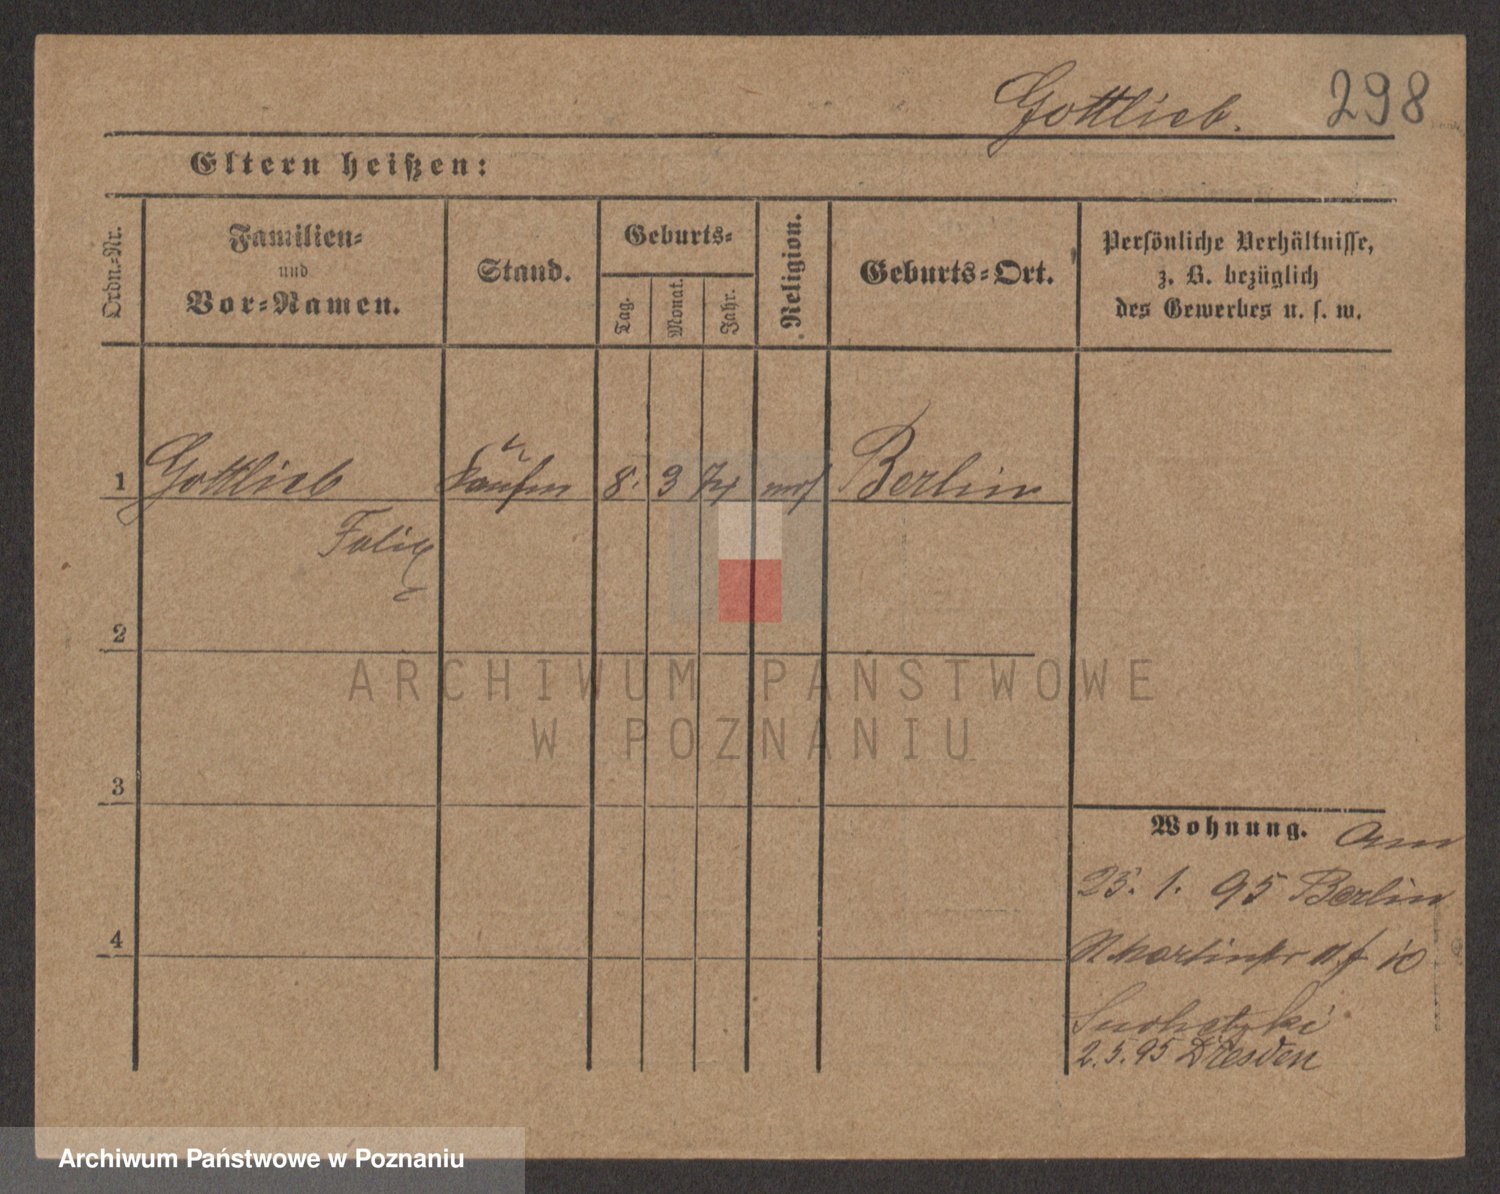 Gottlieb. 298
Eltern heißen:
Ordn.-Nr.
Familien-
und
Vor-Namen.
Stand.
Geburts-
Tag.
Monat.
Jahr.
Religion.
Geburts-Ort.
Persönliche Verhältnisse,
z. B. bezüglich
des Gewerbes u. s. w.
1 Gottlieb Kaufm 8. 3 74 mos Berlin
Felix
2
ARCHIWUM PAŃSTWOWE
W POZNANIU
3
Wohnung. am
25. 1. 95 Berlin
St Martinstr 10
4
2. 5. 95 Dresden
Archiwum Państwowe w Poznaniu